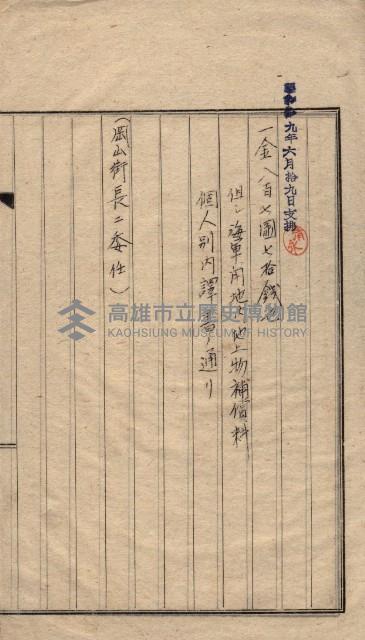 昭和 九年六月拾九日支拂
一金八百七圓七拾錢也
但シ海軍用地々上物補償料
個人別内譯 通リ
(岡山街長ニ委任)
高雄市立歷史博物館
KAOHSIUNG MUSEUM OF HISTORY